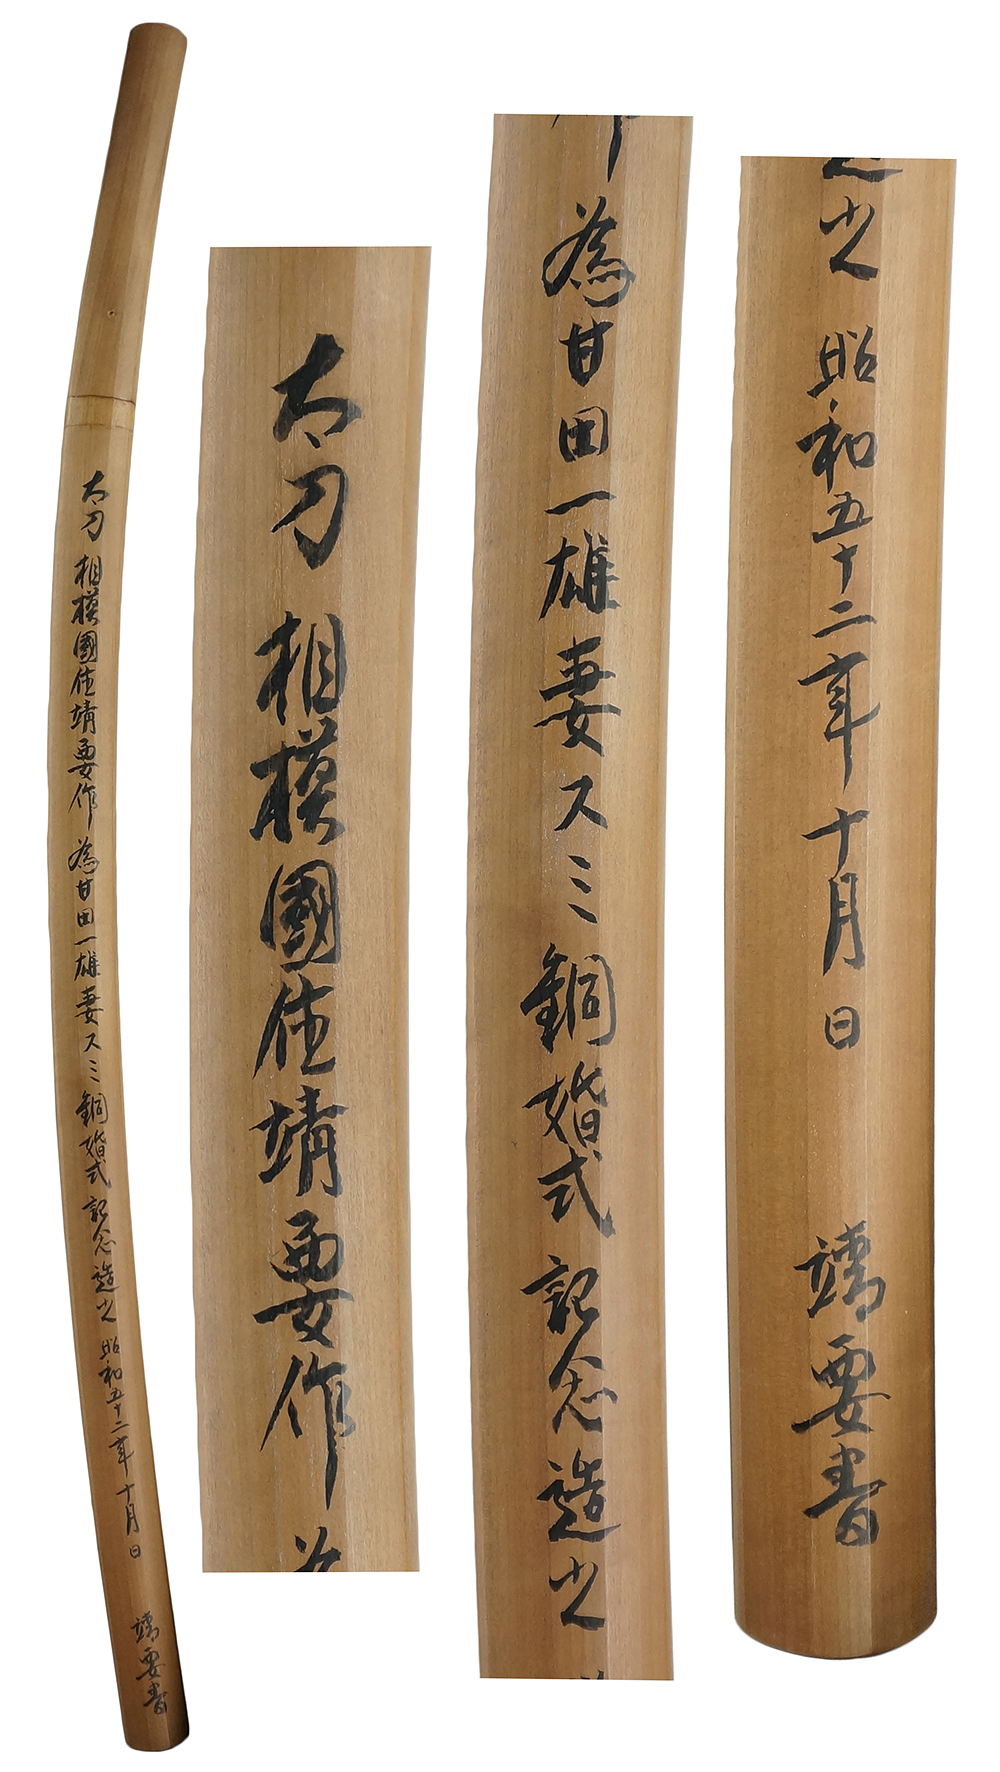 太刀 相模國住靖要作 為甘田一雄妻スミ銅婚式記念造之 昭和五十二年十月日 靖要書
太刀 相模國住靖要作 為
作 為甘田一雄妻スミ銅婚式記念造之
造之 昭和五十二年十月日 靖要書